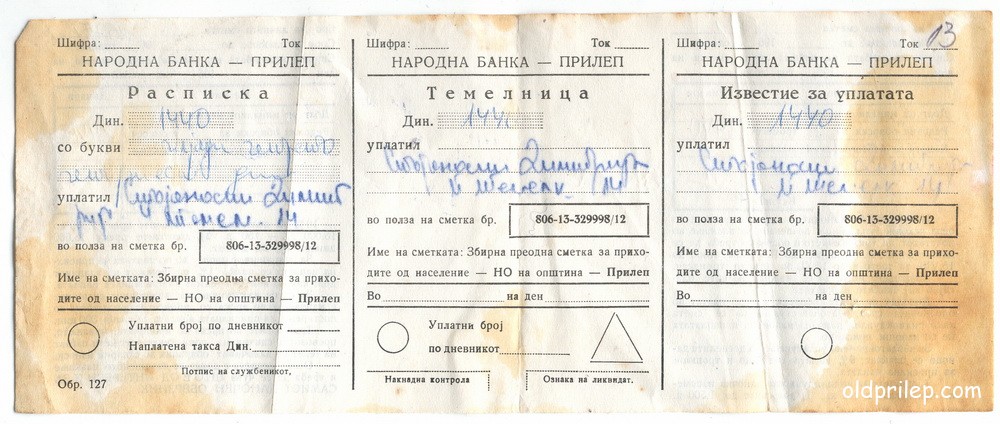 Шифра: Ток
НАРОДНА БАНКА — ПРИЛЕП
Расписка
Дин. 1440
со букви
уплатил
во полза на сметка бр. 806-13-329998/12
Име на сметката: Збирна преодна сметка за прихо-
дите од население — НО на општина — Прилеп
Уплатни број по дневникот
Наплатена такса Дин.
Потпис на службеникот.
Обр. 127
Шифра: Ток
НАРОДНА БАНКА — ПРИЛЕП
Темелница
Дин.
уплатил
14
во полза на сметка бр. 806-13-329998/12
Име на сметката: Збирна преодна сметка за прихо-
дите од население — НО на општина — Прилеп
Во на ден
Уплатни број
по дневникот
Накнадна контрола Ознака на ликвидат.
Шифра: Ток 13
НАРОДНА БАНКА — ПРИЛЕП
Известие за уплатата
Дин. 1440
уплатил
14
во полза на сметка бр. 806-13-329998/12
Име на сметката: Збирна преодна сметка за прихо-
дите од население — НО на општина — Прилеп
Во на ден
oldprilep.com